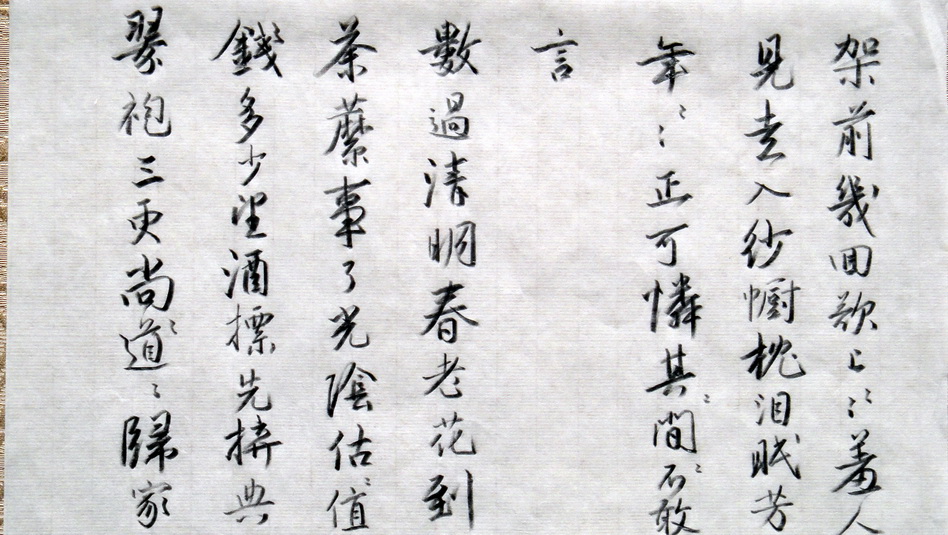 架前幾回欲上〻羞人
見走入紗幮枕泪眠芳
年〻正可憐其間不敢
言
數過清明春老花到
荼蘼事了光陰估值
錢多少望酒標先拚典
翠袍三更尚道〻歸家